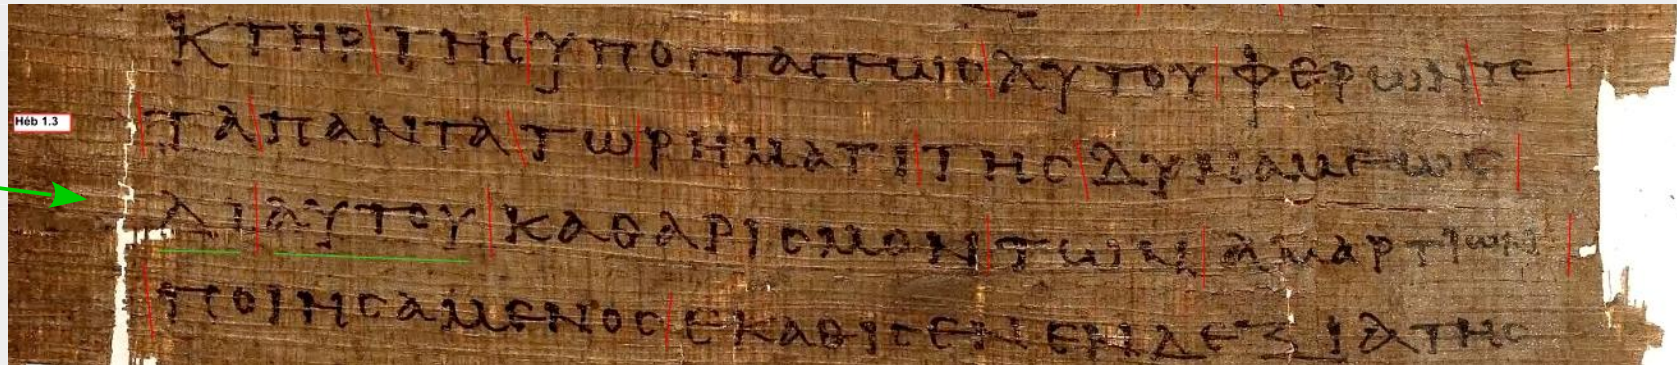 ΚΤΗΡ ΤΗϹ ΥΠΟϹΤΑϹΕΩϹ ΑΥΤΟΥ ΦΕΡΩΝ ΤΕ
Héb 1.3
ΤΑ ΠΑΝΤΑ ΤΩ ΡΗΜΑΤΙ ΤΗϹ ΔΥΝΑΜΕΩϹ
ΔΙ ΑΥΤΟΥ ΚΑΘΑΡΙϹΜΟΝ ΤΩΝ ΑΜΑΡΤΙΩΝ
ΠΟΙΗϹΑΜΕΝΟϹ ΕΚΑΘΙϹΕΝ ΕΝ ΔΕΞΙΑ ΤΗϹ